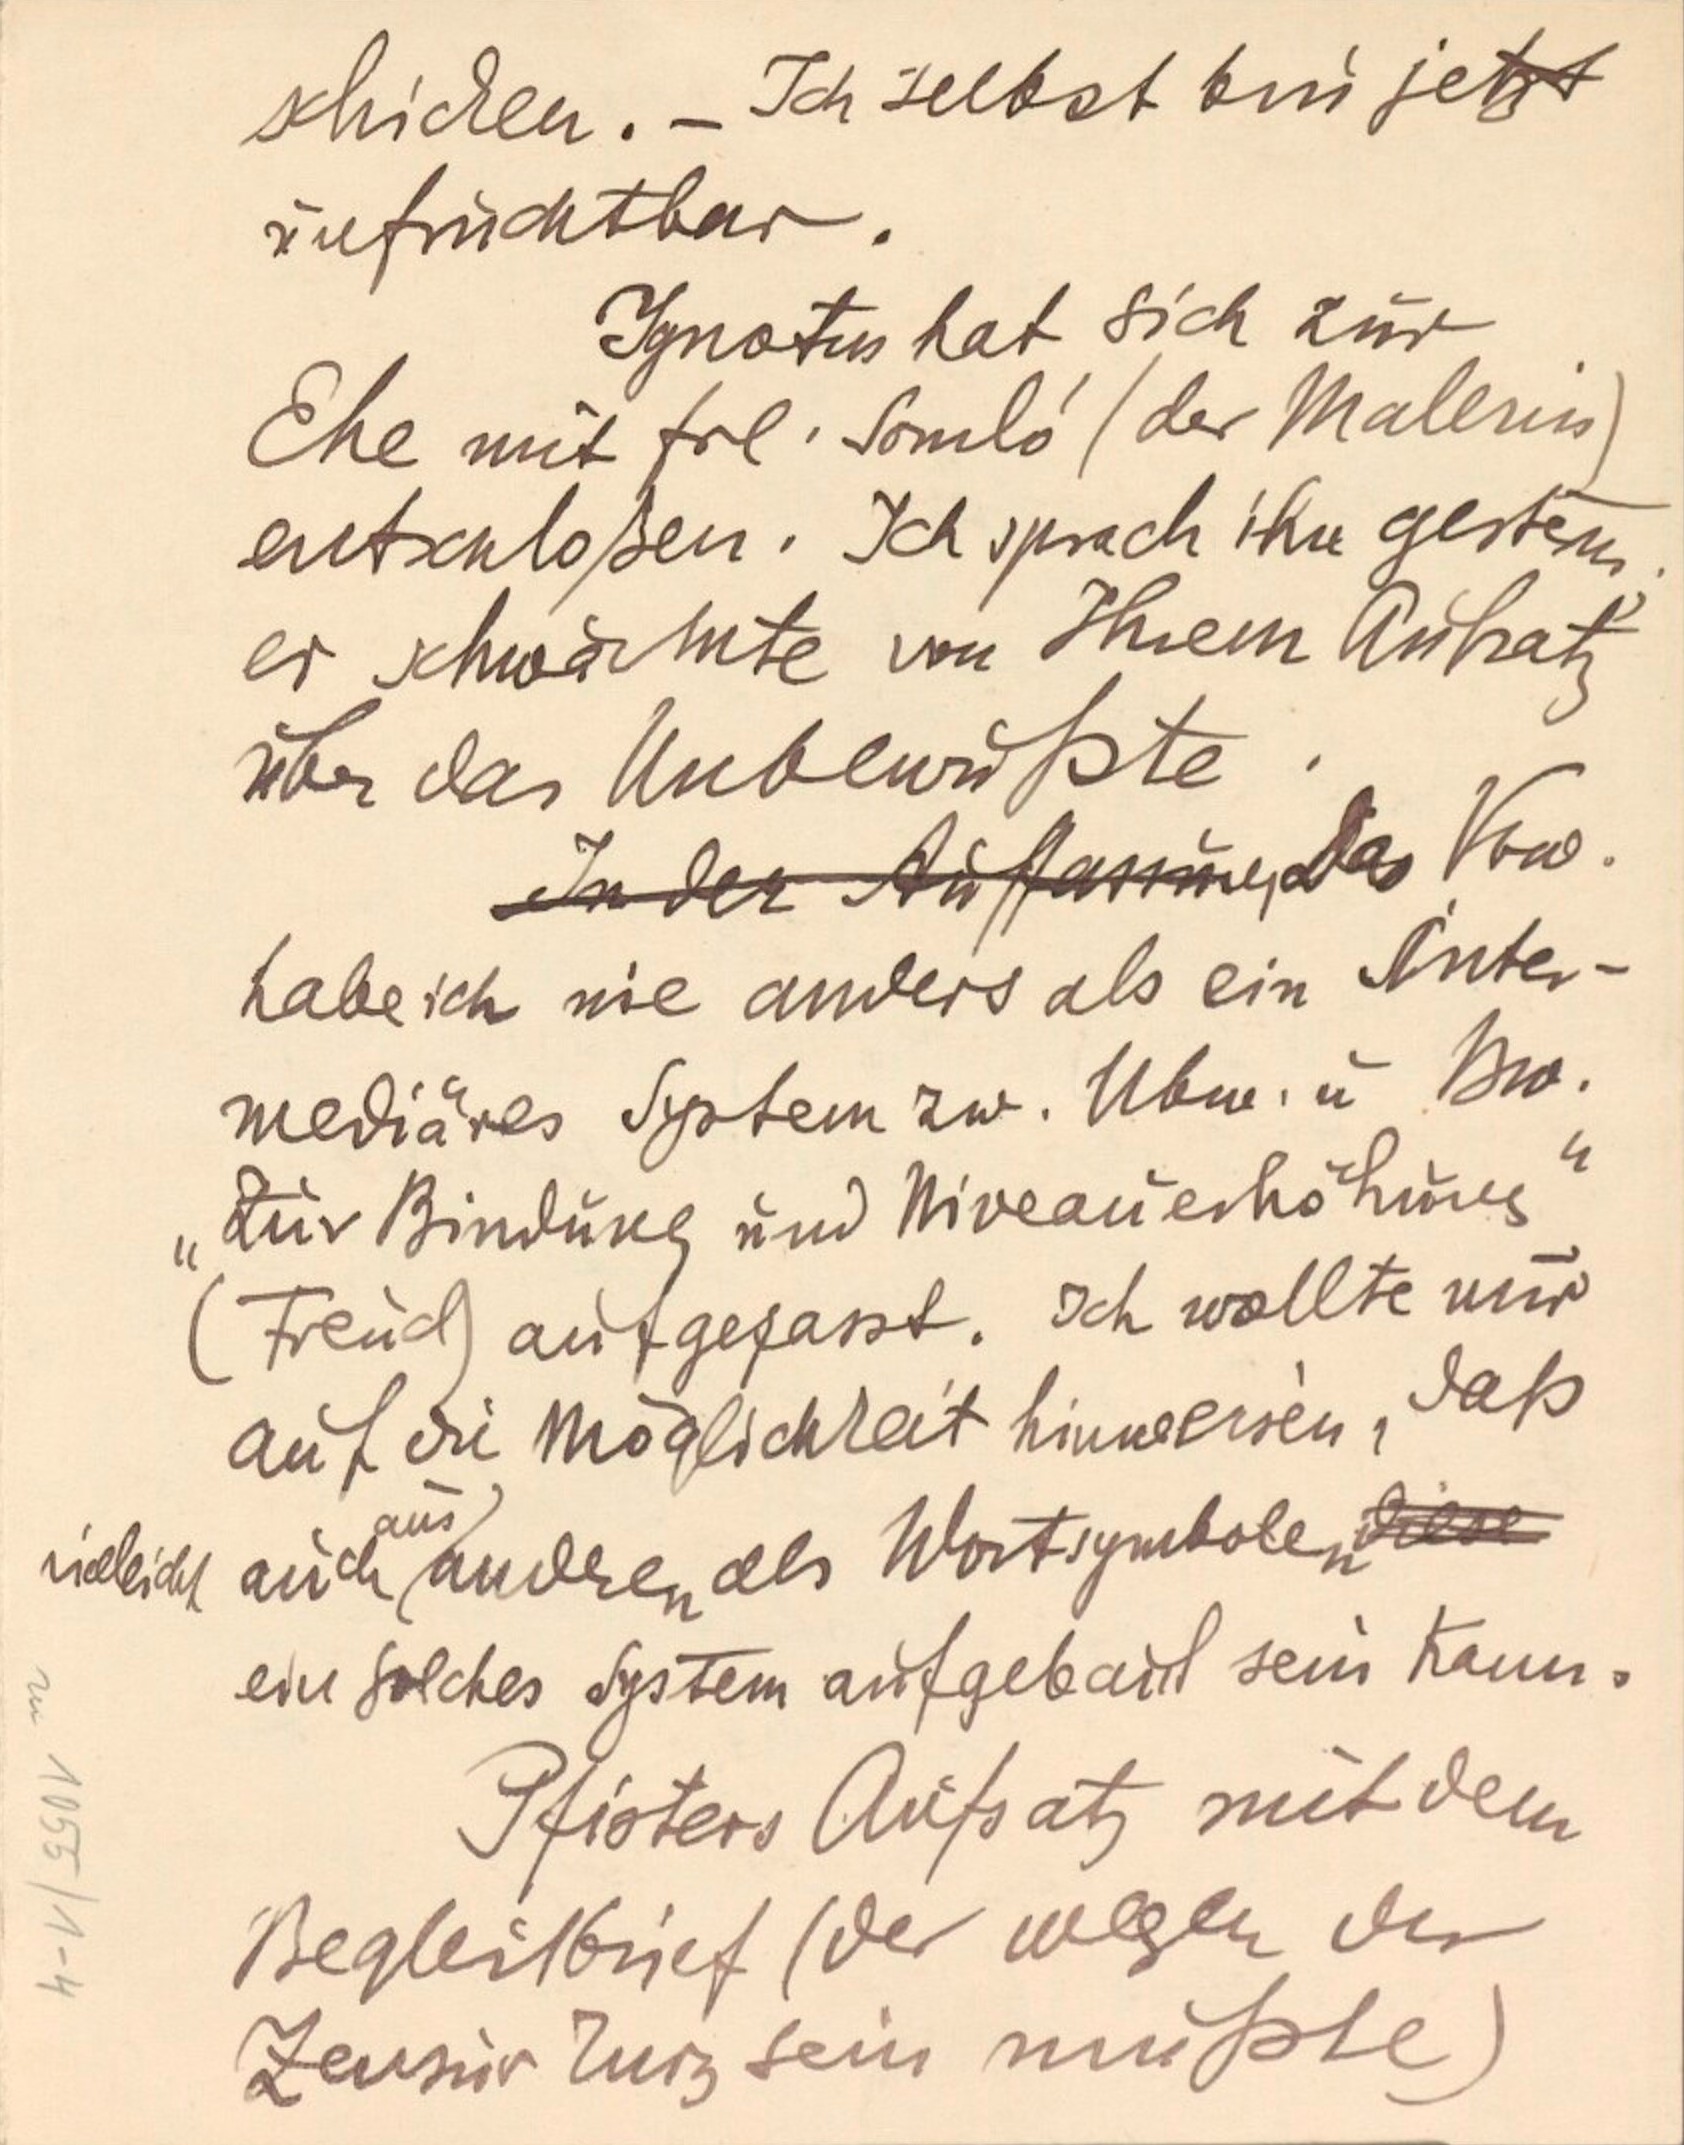 schicken. – Ich selbst bin jetzt
unfruchtbar.
Ignotus hat sich zur
Ehe mit Frl. Somló (der Malerin)
entschloßen. Ich sprach ihn gestern;
er schwärmte von Ihrem Aufsatz
über das Unbewußte.
In der Auffassung Das Vbw.
habe ich nie anders als ein Inter-
mediäres System zw. Ubw. u Bw.
„Zur Bindung und Niveauerhöhung“
(Freud) aufgefasst. Ich wollte nur
auf die Möglichkeit hinweisen, daß
vielleicht auch aus andren als Wortsymbolen diese
ein solches System aufgebaut sein kann.
Pfisters Aufsatz mit dem
Begleitbrief (der wegen der
Zensur kurz sein mußte)
1055/1-4